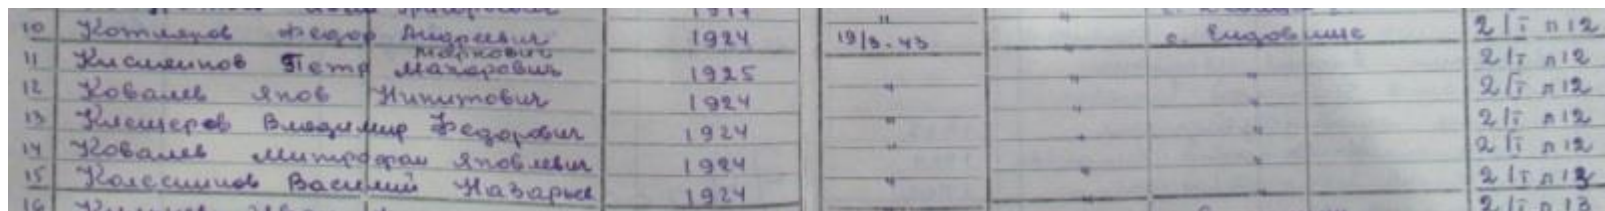 10 Котляров Федор Андреевич 1924 19/3.43 с. Ендовище 2/I л 12
Маркович
11 Кисленков Петр Макарович 1925 " " " 2/I л 12
12 Ковалев Яков Никитович 1924 " " " 2/I л 12
13 Клещеров Владимир Федорович 1924 " " " 2/I л 12
14 Ковалев Митрофан Яковлевич 1924 " " " 2/I л 12
15 Колесников Василий Назарьев 1924 " " " 2/I л 13
16 2/I л 13